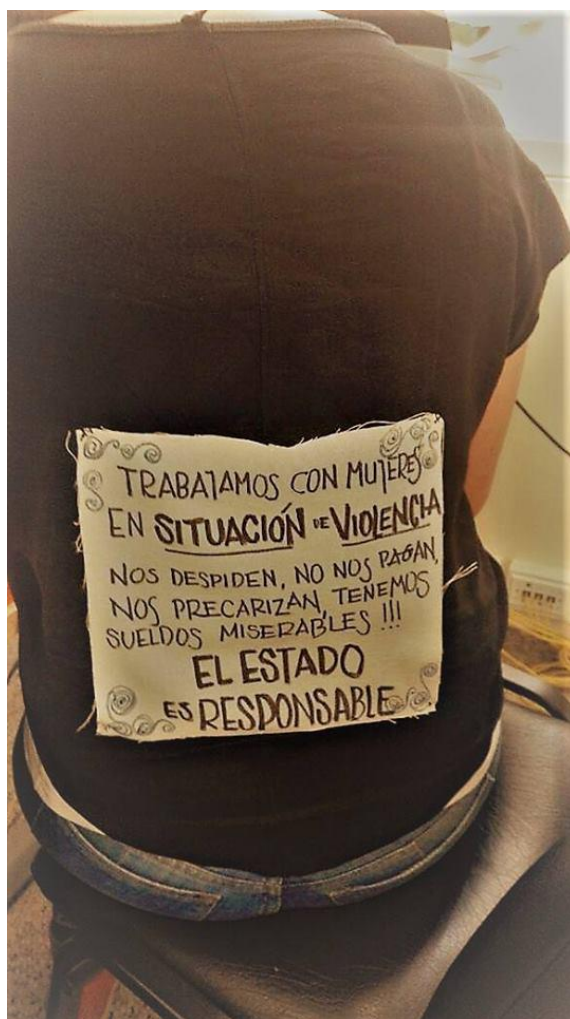 TRABAJAMOS CON MUJERES
EN SITUACIÓN DE VIOLENCIA
NOS DESPIDEN, NO NOS PAGAN,
NOS PRECARIZAN, TENEMOS
SUELDOS MISERABLES !!!
EL ESTADO
ES RESPONSABLE